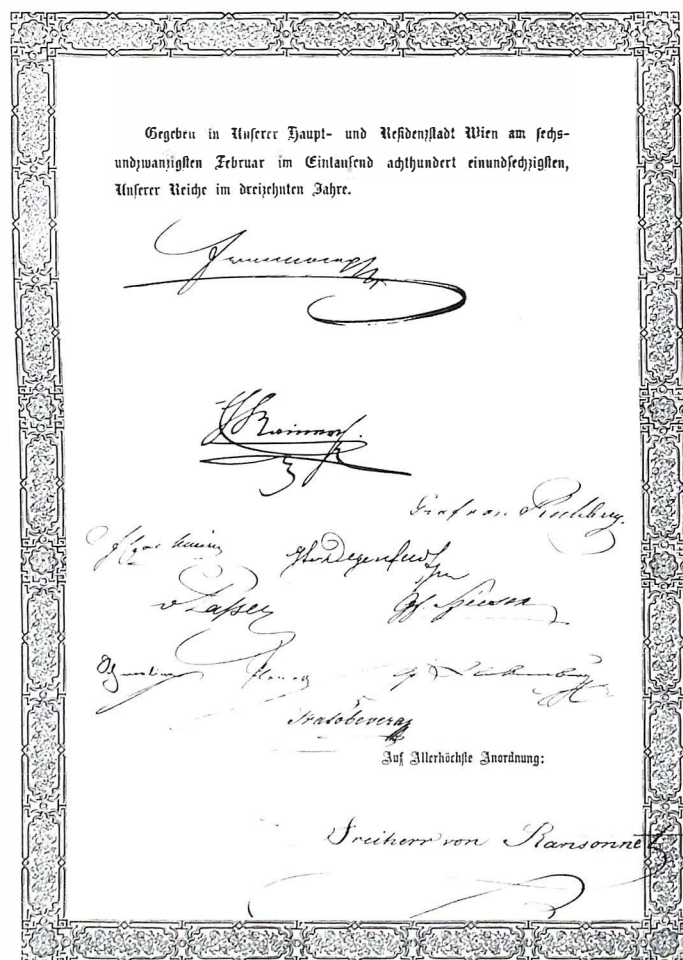 Gegeben in Unserer Haupt- und Residenzstadt Wien am sechs-
undzwanzigsten Februar im Eintausend achthundert einundsechzigsten,
Unserer Reiche im dreizehnten Jahre.
Rainer
Graf von Rechberg.
Degenfeld
v Lasser
Gf. Szécsen
Pratobevera
Auf Allerhöchste Anordnung:
Freiherr von Ransonnet